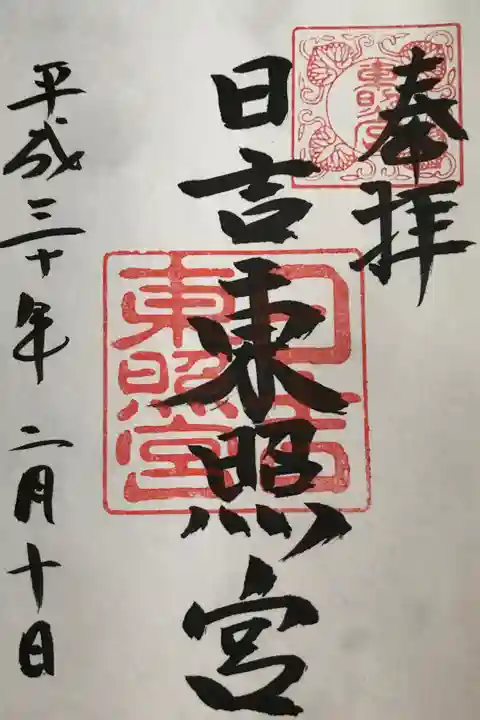 奉拝
東照宮
日吉東照宮
日吉
東照宮
平成三十年二月十日